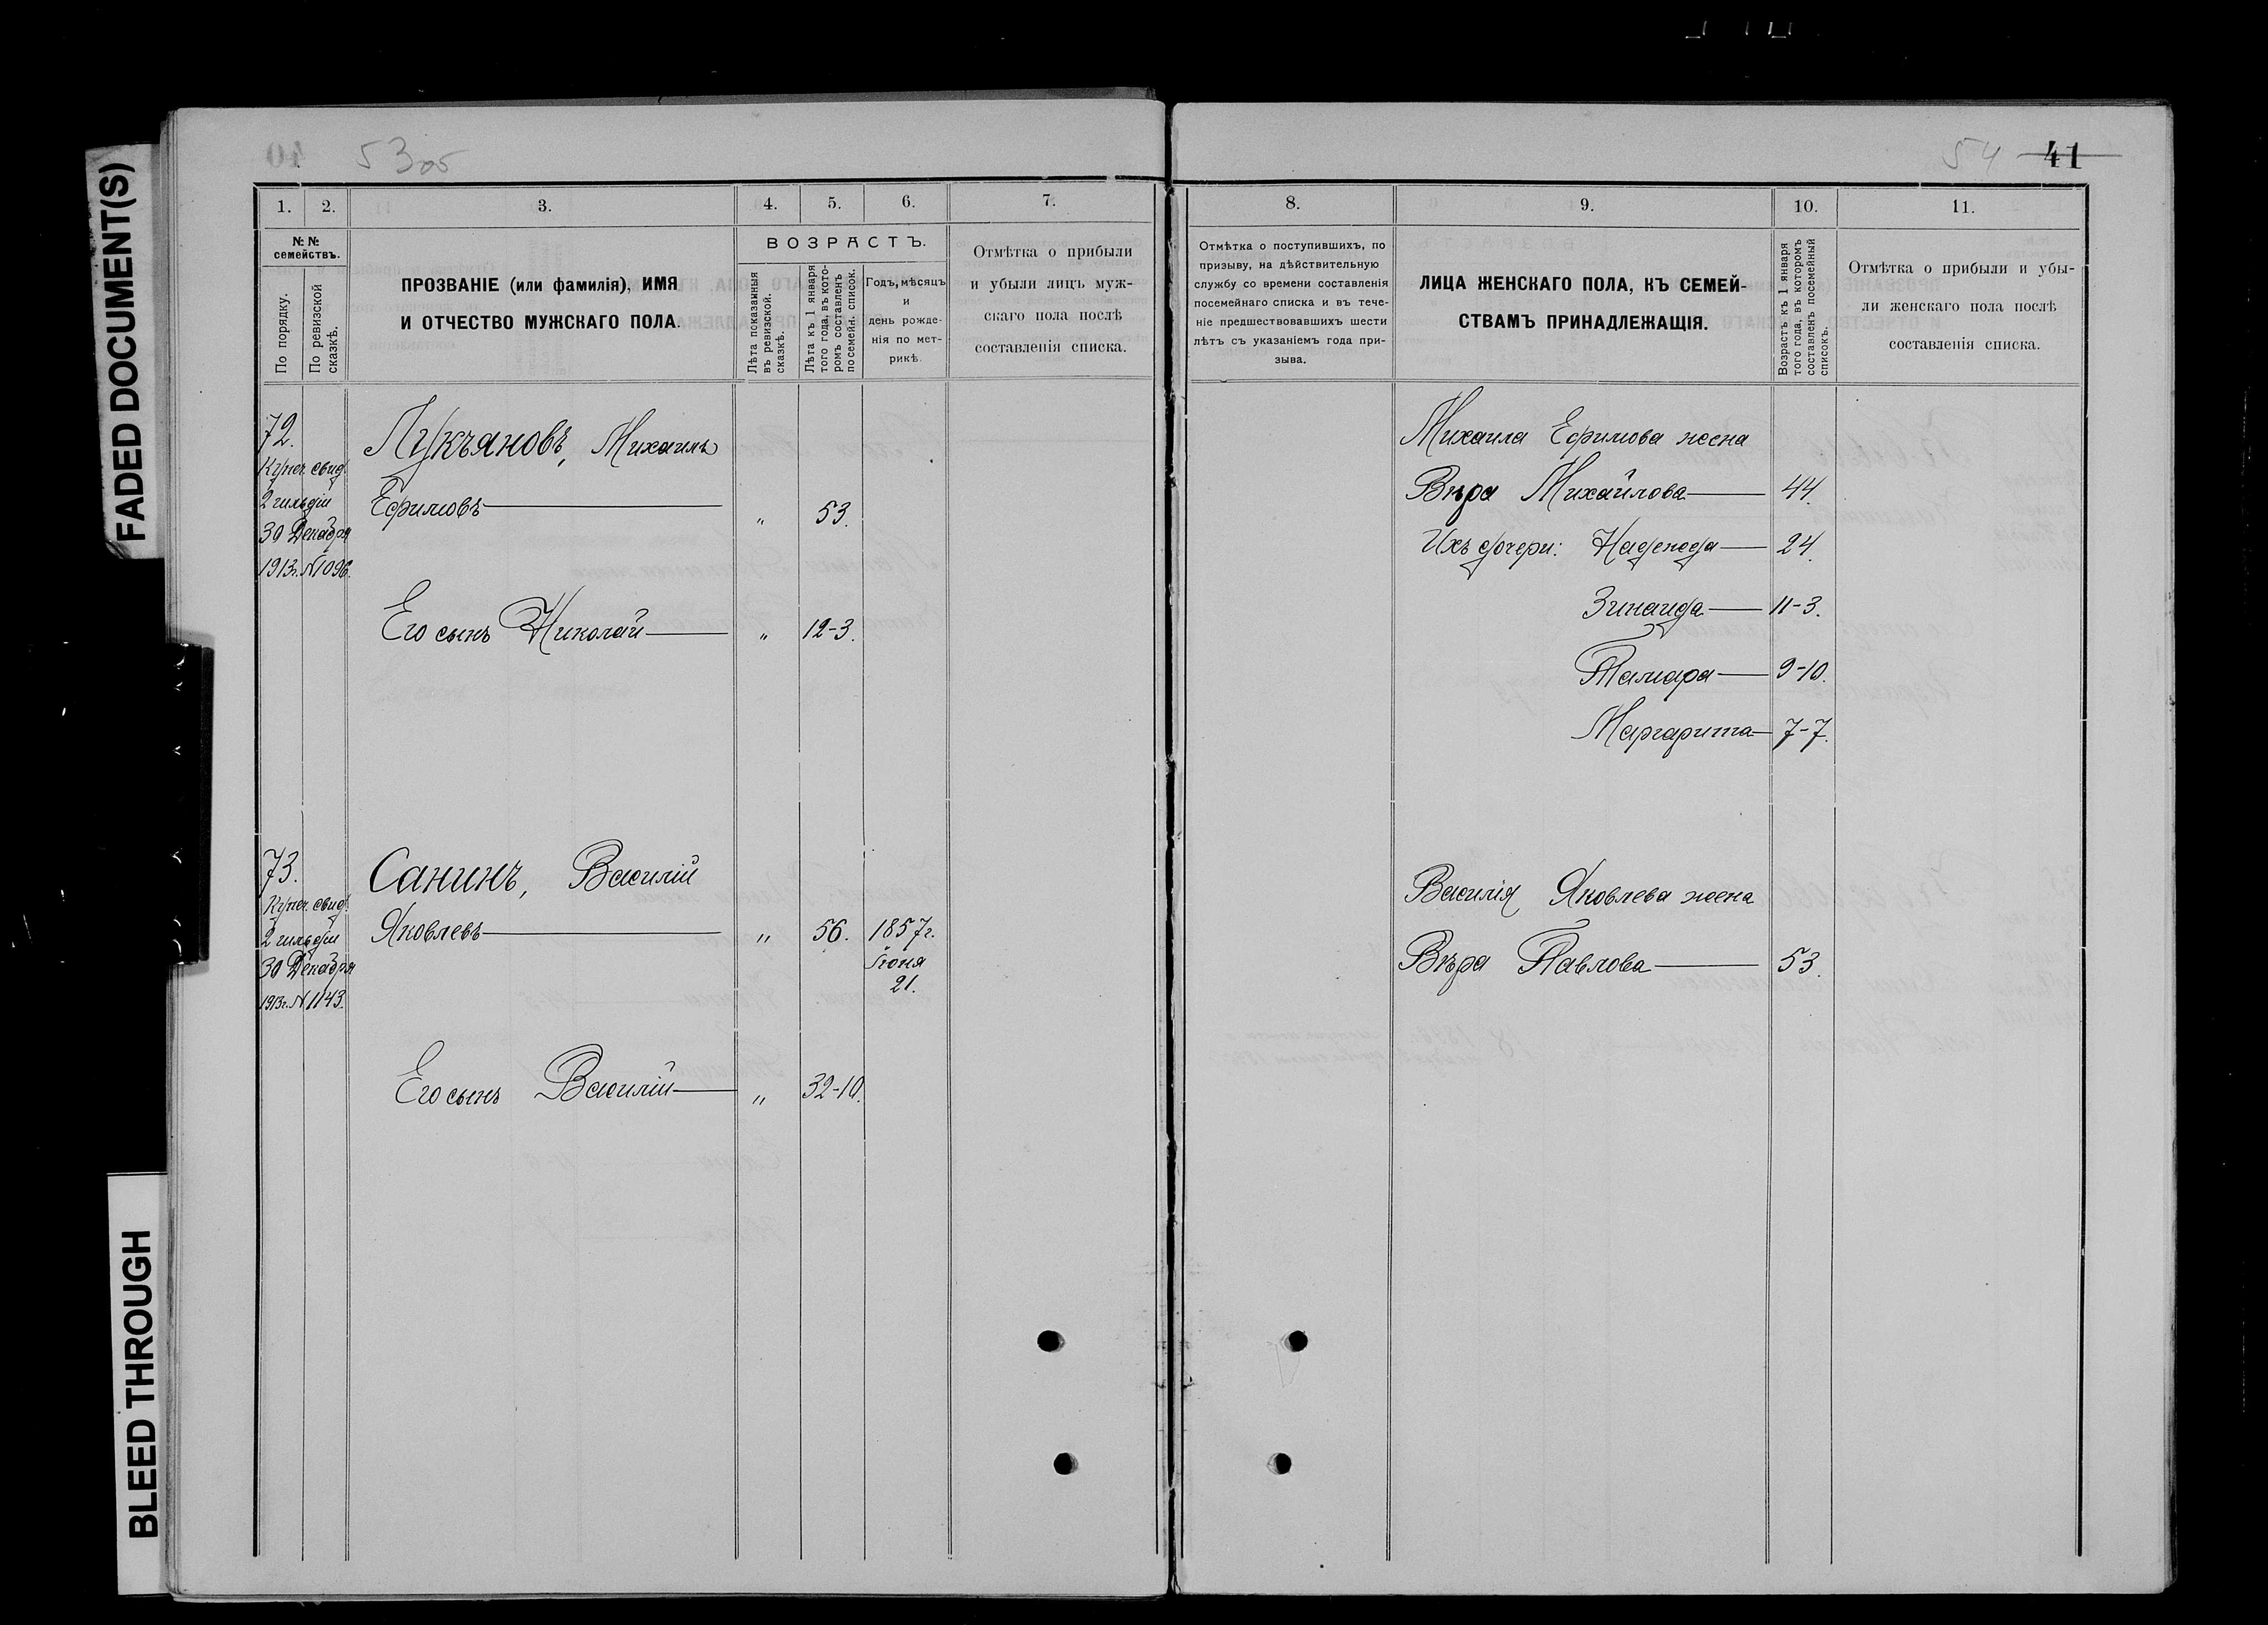 FADED DOCUMENT(S)
BLEED THROUGH
53об
54 41
1. 2. 3. 4. 5. 6. 7.
№ №
семействъ.
По порядку.
По ревизской
сказкѣ.
ПРОЗВАНІЕ (или фамилія), ИМЯ
И ОТЧЕСТВО МУЖСКАГО ПОЛА.
ВОЗРАСТЪ.
Лѣта показанныя
въ ревизской.
сказкѣ.
Лѣта къ 1 января
того года, въ кото-
ромъ составленъ
посемейн. список.
Годъ, мѣсяцъ
и
день рожде-
нія по мет-
рикѣ.
Отмѣтка о прибыли
и убыли лицъ муж-
скаго пола послѣ
составленія списка.
72.
Купеч. свид.
2 гильдіи
30 Декабря
1913г. № 1096.
Лукъяновъ, Михаилъ
Ефимовъ " 53.
Его сынъ Николай " 12-3.
73.
Купеч. свид.
2 гильдіи
30 Декабря
1913г. № 1143.
Санинъ, Василій
Яковлевъ " 56. 1857г.
Іюня
21.
Его сынъ Василій " 32-10.
8. 9. 10. 11.
Отмѣтка о поступившихъ, по
призыву, на дѣйствительную
службу со времени составленія
посемейнаго списка и въ тече-
ніе предшествовавшихъ шести
лѣтъ съ указаніемъ года при-
зыва.
ЛИЦА ЖЕНСКАГО ПОЛА, КЪ СЕМЕЙ-
СТВАМЪ ПРИНАДЛЕЖАЩІЯ.
Возрастъ къ 1 января
того года, въ которомъ
составленъ посемейный
списокъ.
Отмѣтка о прибыли и убы-
ли женскаго пола послѣ
составленія списка.
Михаила Ефимова жена
Вѣра Михайлова 44.
Ихъ дочери: Надежда 24.
Зинаида 11-3.
Тамара 9-10.
Маргарита 7-7.
Василія Яковлева жена
Вѣра Павлова 53.